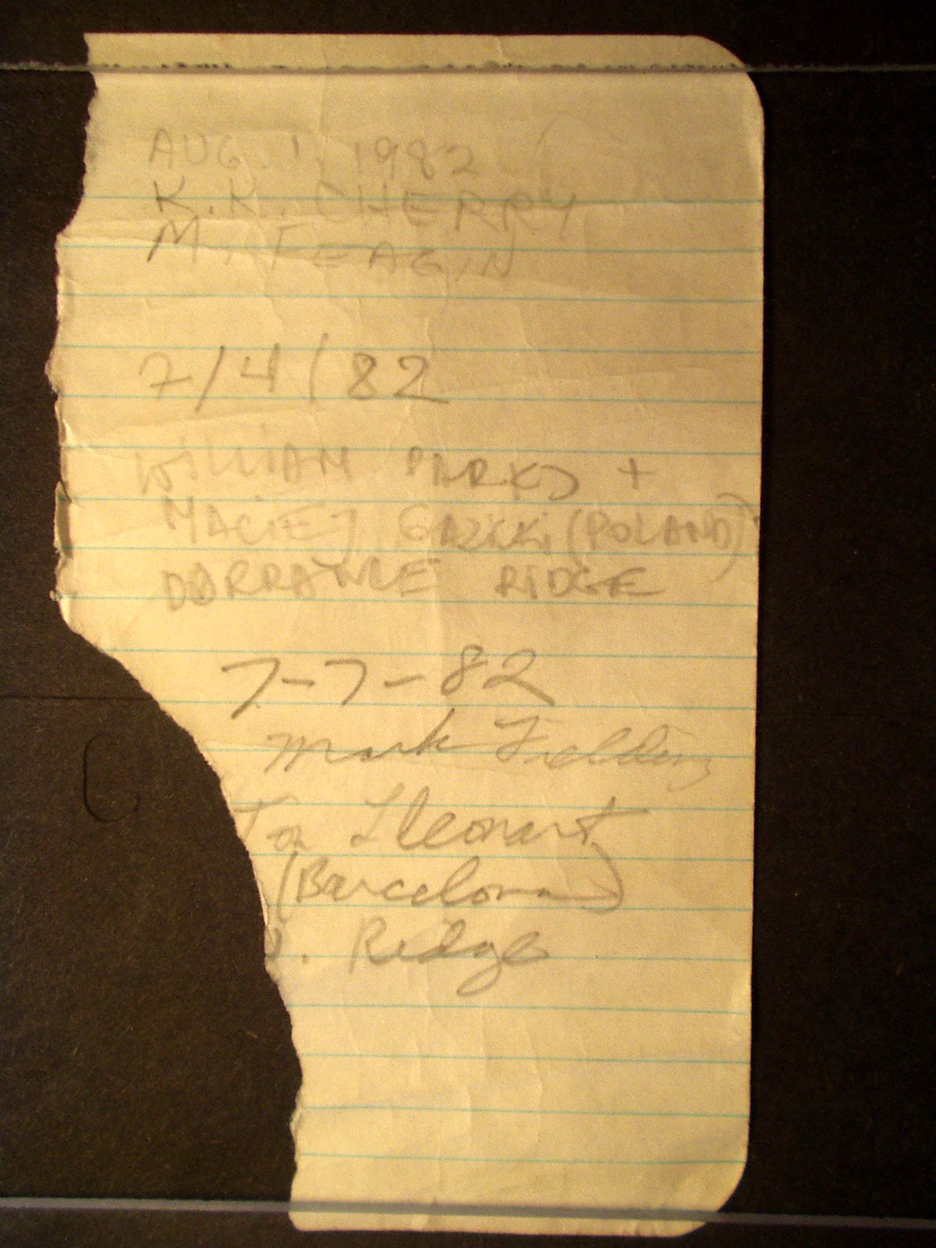 AUG. 1, 1982
K.K. CHERRY
M. FEAGIN
7/4/82
WILLIAM PARKS +
MACIEJ (POLAND)
DORRANCE RIDGE
7-7-82
Mark Fielding
Lleonart
(Barcelona)
D. Ridge